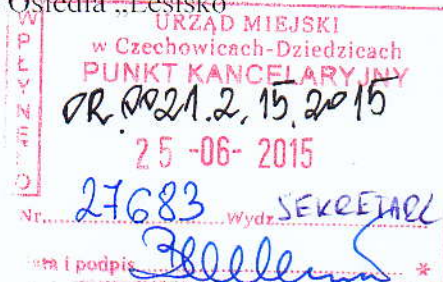 Osiedla „Lesisko"
WPŁYNĘŁO
URZĄD MIEJSKI
w Czechowicach-Dziedzicach
PUNKT KANCELARYJNY
OR.0021.2.15.2015
25 -06- 2015
Nr. 27683 Wydz. SEKRETARZ
i podpis